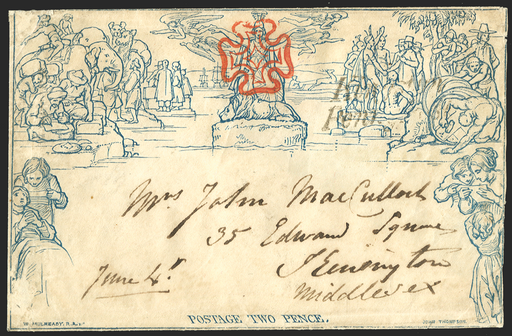 Penny
Mrs John MacCulloch
35 Edward Square
Kensington
Middlesex
June 4th
POSTAGE TWO PENCE.
W. MULREADY, R.A.
JOHN THOMPSON